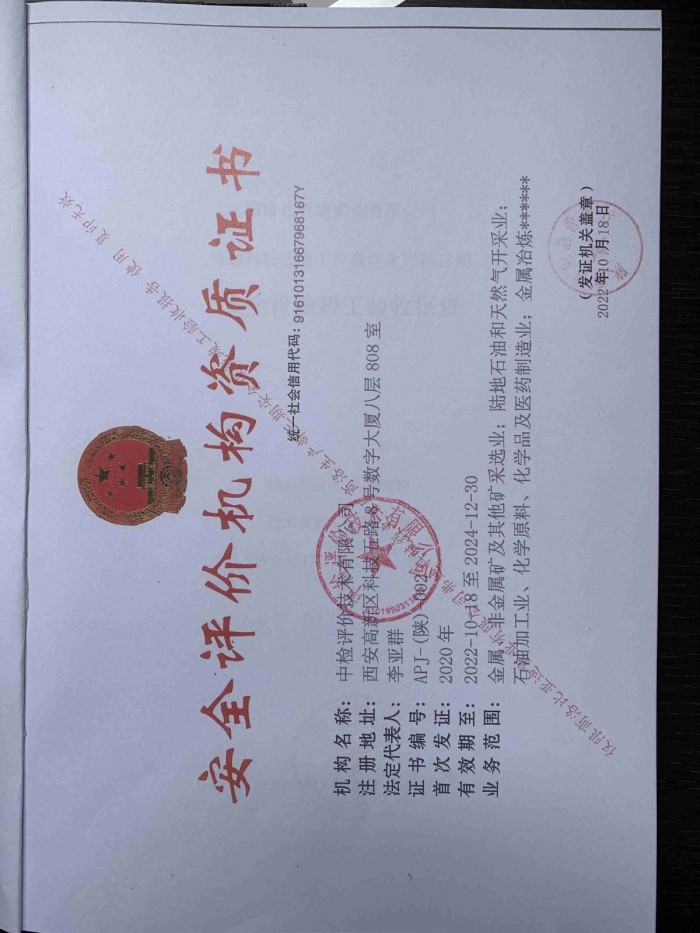 安全评价机构资质证书
统一社会信用代码：91610131667968167Y
机构名称：中检评价技术有限公司
注册地址：西安高新区科技五路8号数字大厦八层808室
法定代表人：李亚群
证书编号：APJ-(陕)-002
首次发证：2020年
有效期至：2022-10-18至2024-12-30
业务范围：金属、非金属矿及其他矿采选业；陆地石油和天然气开采业；
石油加工业、化学原料、化学品及医药制造业；金属冶炼******
(发证机关盖章)
2022年10月18日
仅限商洛比亚迪实业有限公司
商洛生产
竣工验收报告使用 复印无效